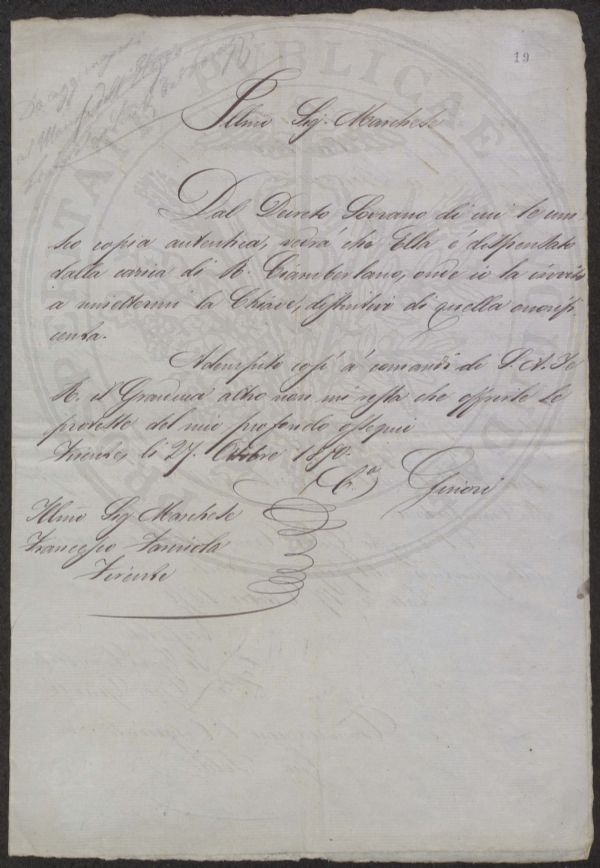 19
Illmo Sig. Marchese
Dal Decreto Sovrano di cui le um-
lio copia autentica, vedrà che Ella è dispensato
dalla carica di R. Ciamberlano, onde io la invito
a rimettermi la Chiave, distintivo di quella onorifi-
cenza.
Adempito così a' comandi di S. A. I. e
R. il Granduca altro non mi resta che offrirle le
proteste del mio profondo ossequio
Firenze li 27. Ottobre
(C.a) Ginori
Illmo Sig. Marchese
Francesco Farinola
Firenze